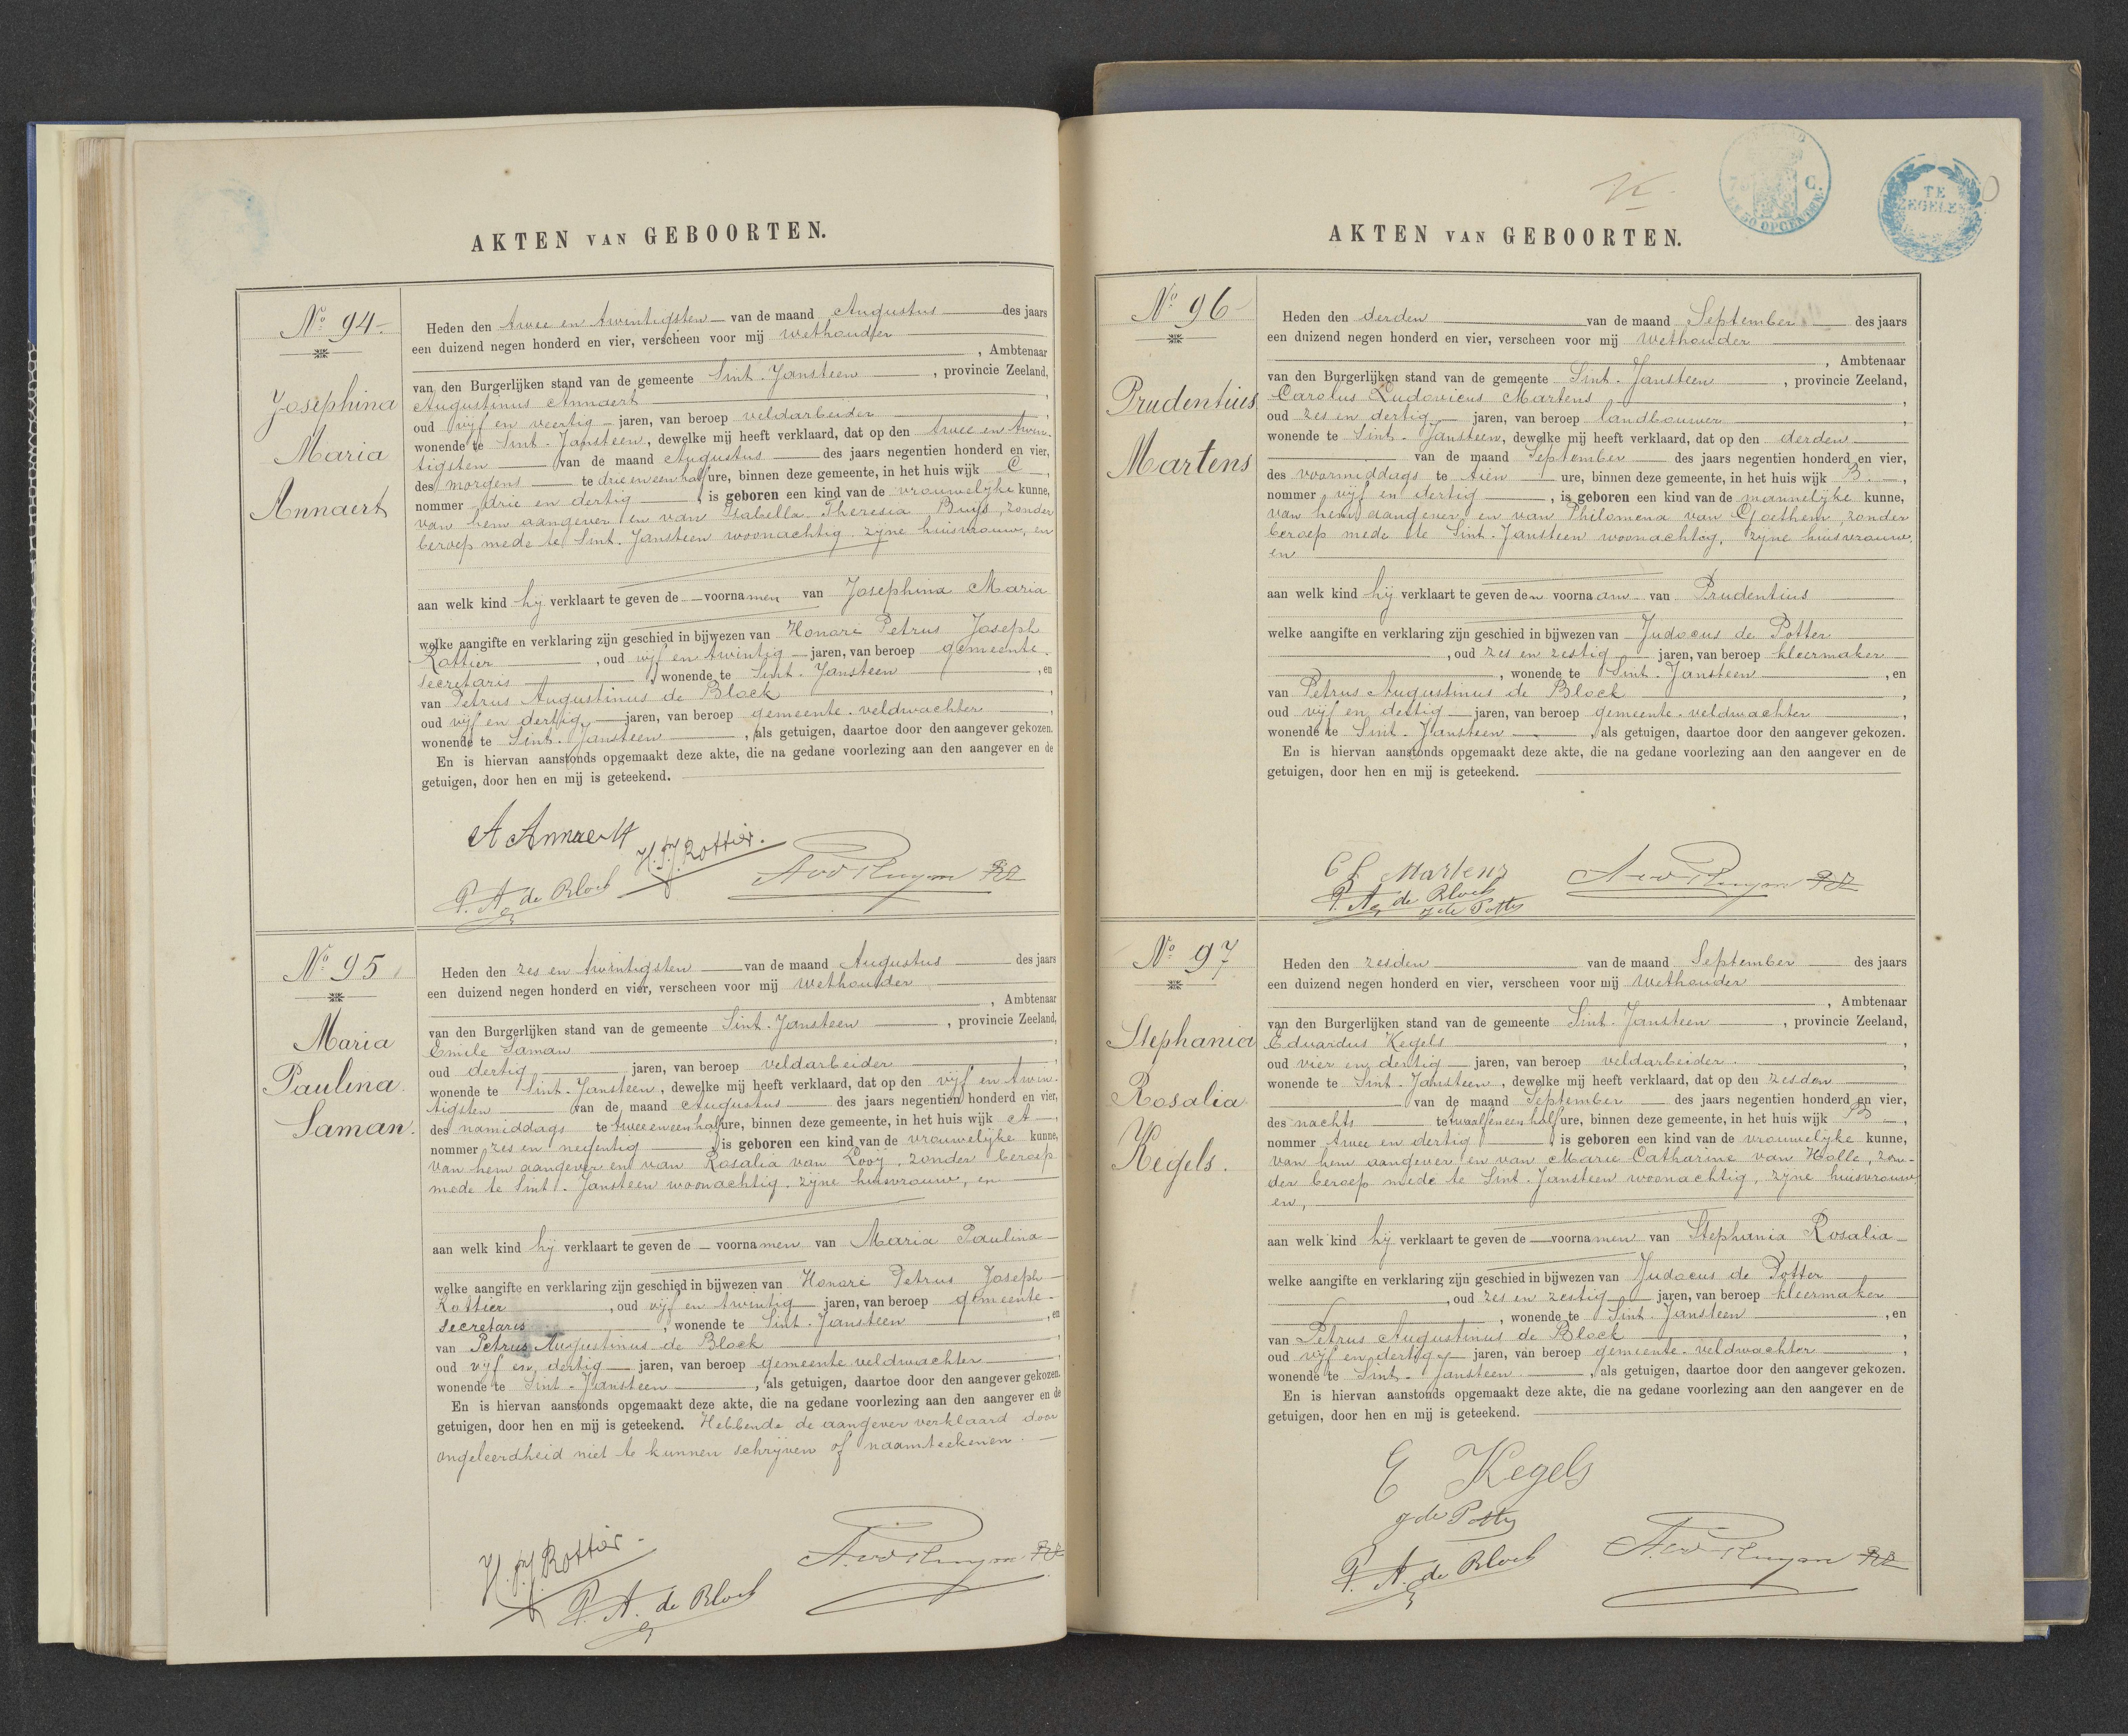 AKTEN VAN GEBOORTEN.
No. 94
Josephina
Maria
Annaert
Heden den twee en twintigsten van de maand Augustus des jaars
een duizend negen honderd en vier, verscheen voor mij wethouder
, Ambtenaar
van den Burgerlijken stand van de gemeente Sint-Jansteen, provincie Zeeland,
Augustinus Annaert,
oud vijf en veertig jaren, van beroep veldarbeider,
wonende te Sint-Jansteen, dewelke mij heeft verklaard, dat op den twee en twin-
tigsten van de maand Augustus des jaars negentien honderd en vier,
des morgens te drie en een half ure, binnen deze gemeente, in het huis wijk C,
nommer drie en dertig, is geboren een kind van de vrouwelijke kunne,
van hem aangever en van Isabella Theresia Buijs, zonder
beroep mede te Sint-Jansteen woonachtig, zijne huisvrouw, en
aan welk kind hij verklaart te geven de voornamen van Josephina Maria
welke aangifte en verklaring zijn geschied in bijwezen van Honoré Petrus Joseph
Rottier, oud vijf en twintig jaren, van beroep gemeente-
secretaris, wonende te Sint-Jansteen, en
van Petrus Augustinus de Block,
oud vijf en dertig jaren, van beroep gemeente-veldwachter,
wonende te Sint-Jansteen, als getuigen, daartoe door den aangever gekozen.
En is hiervan aanstonds opgemaakt deze akte, die na gedane voorlezing aan den aangever en de
getuigen, door hen en mij is geteekend.
A Annaert
H.P.J. Rottier.
P. A. de Block
No. 95
Maria
Paulina
Saman.
Heden den zes en twintigsten van de maand Augustus des jaars
een duizend negen honderd en vier, verscheen voor mij wethouder
, Ambtenaar
van den Burgerlijken stand van de gemeente Sint-Jansteen, provincie Zeeland,
Emile Saman,
oud dertig jaren, van beroep veldarbeider,
wonende te Sint-Jansteen, dewelke mij heeft verklaard, dat op den vijf en twin-
tigsten van de maand Augustus des jaars negentien honderd en vier,
des namiddags te twee en een half ure, binnen deze gemeente, in het huis wijk A,
nommer zes en negentig, is geboren een kind van de vrouwelijke kunne,
van hem aangever en van Rosalia van Looij, zonder beroep
mede te Sint-Jansteen woonachtig, zijne huisvrouw, en
aan welk kind hij verklaart te geven de voornamen van Maria Paulina
welke aangifte en verklaring zijn geschied in bijwezen van Honoré Petrus Joseph
Rottier, oud vijf en twintig jaren, van beroep gemeente-
secretaris, wonende te Sint-Jansteen, en
van Petrus Augustinus de Block,
oud vijf en dertig jaren, van beroep gemeente veldwachter,
wonende te Sint-Jansteen, als getuigen, daartoe door den aangever gekozen.
En is hiervan aanstonds opgemaakt deze akte, die na gedane voorlezing aan den aangever en de
getuigen, door hen en mij is geteekend. Hebbende de aangever verklaard door
ongeleerdheid niet te kunnen schrijven of naamteekenen.
H.P.J. Rottier
P. A. de Block
AKTEN VAN GEBOORTEN.
TE
ZEGELEN
No. 96
Prudentius
Martens
Heden den derden van de maand September des jaars
een duizend negen honderd en vier, verscheen voor mij wethouder
, Ambtenaar
van den Burgerlijken stand van de gemeente Sint-Jansteen, provincie Zeeland,
Carolus Ludovicus Martens,
oud zes en dertig jaren, van beroep landbouwer,
wonende te Sint-Jansteen, dewelke mij heeft verklaard, dat op den derden
van de maand September des jaars negentien honderd en vier,
des voormiddags te tien ure, binnen deze gemeente, in het huis wijk B.,
nommer vijf en dertig, is geboren een kind van de mannelijke kunne,
van hem aangever en van Philomena van Goethem, zonder
beroep mede te Sint-Jansteen woonachtig, zijne huisvrouw,
en
aan welk kind hij verklaart te geven den voornaam van Prudentius
welke aangifte en verklaring zijn geschied in bijwezen van Judocus de Potter
, oud zes en zestig jaren, van beroep kleermaker
, wonende te Sint-Jansteen, en
van Petrus Augustinus de Block,
oud vijf en dertig jaren, van beroep gemeente-veldwachter,
wonende te Sint-Jansteen, als getuigen, daartoe door den aangever gekozen.
En is hiervan aanstonds opgemaakt deze akte, die na gedane voorlezing aan den aangever en de
getuigen, door hen en mij is geteekend.
C L Martens
P. A. de Block
J de Potter
No. 97
Stephania
Rosalia
Kegels.
Heden den zesden van de maand September des jaars
een duizend negen honderd en vier, verscheen voor mij wethouder
, Ambtenaar
van den Burgerlijken stand van de gemeente Sint-Jansteen, provincie Zeeland,
Eduardus Kegels,
oud vier en dertig jaren, van beroep veldarbeider,
wonende te Sint-Jansteen, dewelke mij heeft verklaard, dat op den zesden
van de maand September des jaars negentien honderd en vier,
des nachts te twaalf en een half ure, binnen deze gemeente, in het huis wijk B,
nommer twee en dertig, is geboren een kind van de vrouwelijke kunne,
van hem aangever en van Marie Catharine van Holle, zon-
der beroep mede te Sint-Jansteen woonachtig, zijne huisvrouw
en,
aan welk kind hij verklaart te geven de voornamen van Stephania Rosalia
welke aangifte en verklaring zijn geschied in bijwezen van Judocus de Potter
, oud zes en zestig jaren, van beroep kleermaker
, wonende te Sint-Jansteen, en
van Petrus Augustinus de Block,
oud vijf en dertig jaren, van beroep gemeente-veldwachter,
wonende te Sint-Jansteen, als getuigen, daartoe door den aangever gekozen.
En is hiervan aanstonds opgemaakt deze akte, die na gedane voorlezing aan den aangever en de
getuigen, door hen en mij is geteekend.
E Kegels
J de Potter
P. A. de Block